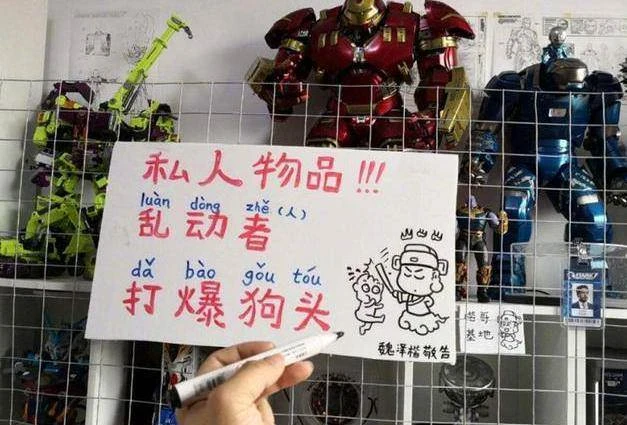 私人物品!!!
luàn dòng zhě(人)
乱动者
dǎ bào gǒu tóu
打爆狗头
魏泽楷敬告
楷哥
基地
STARK